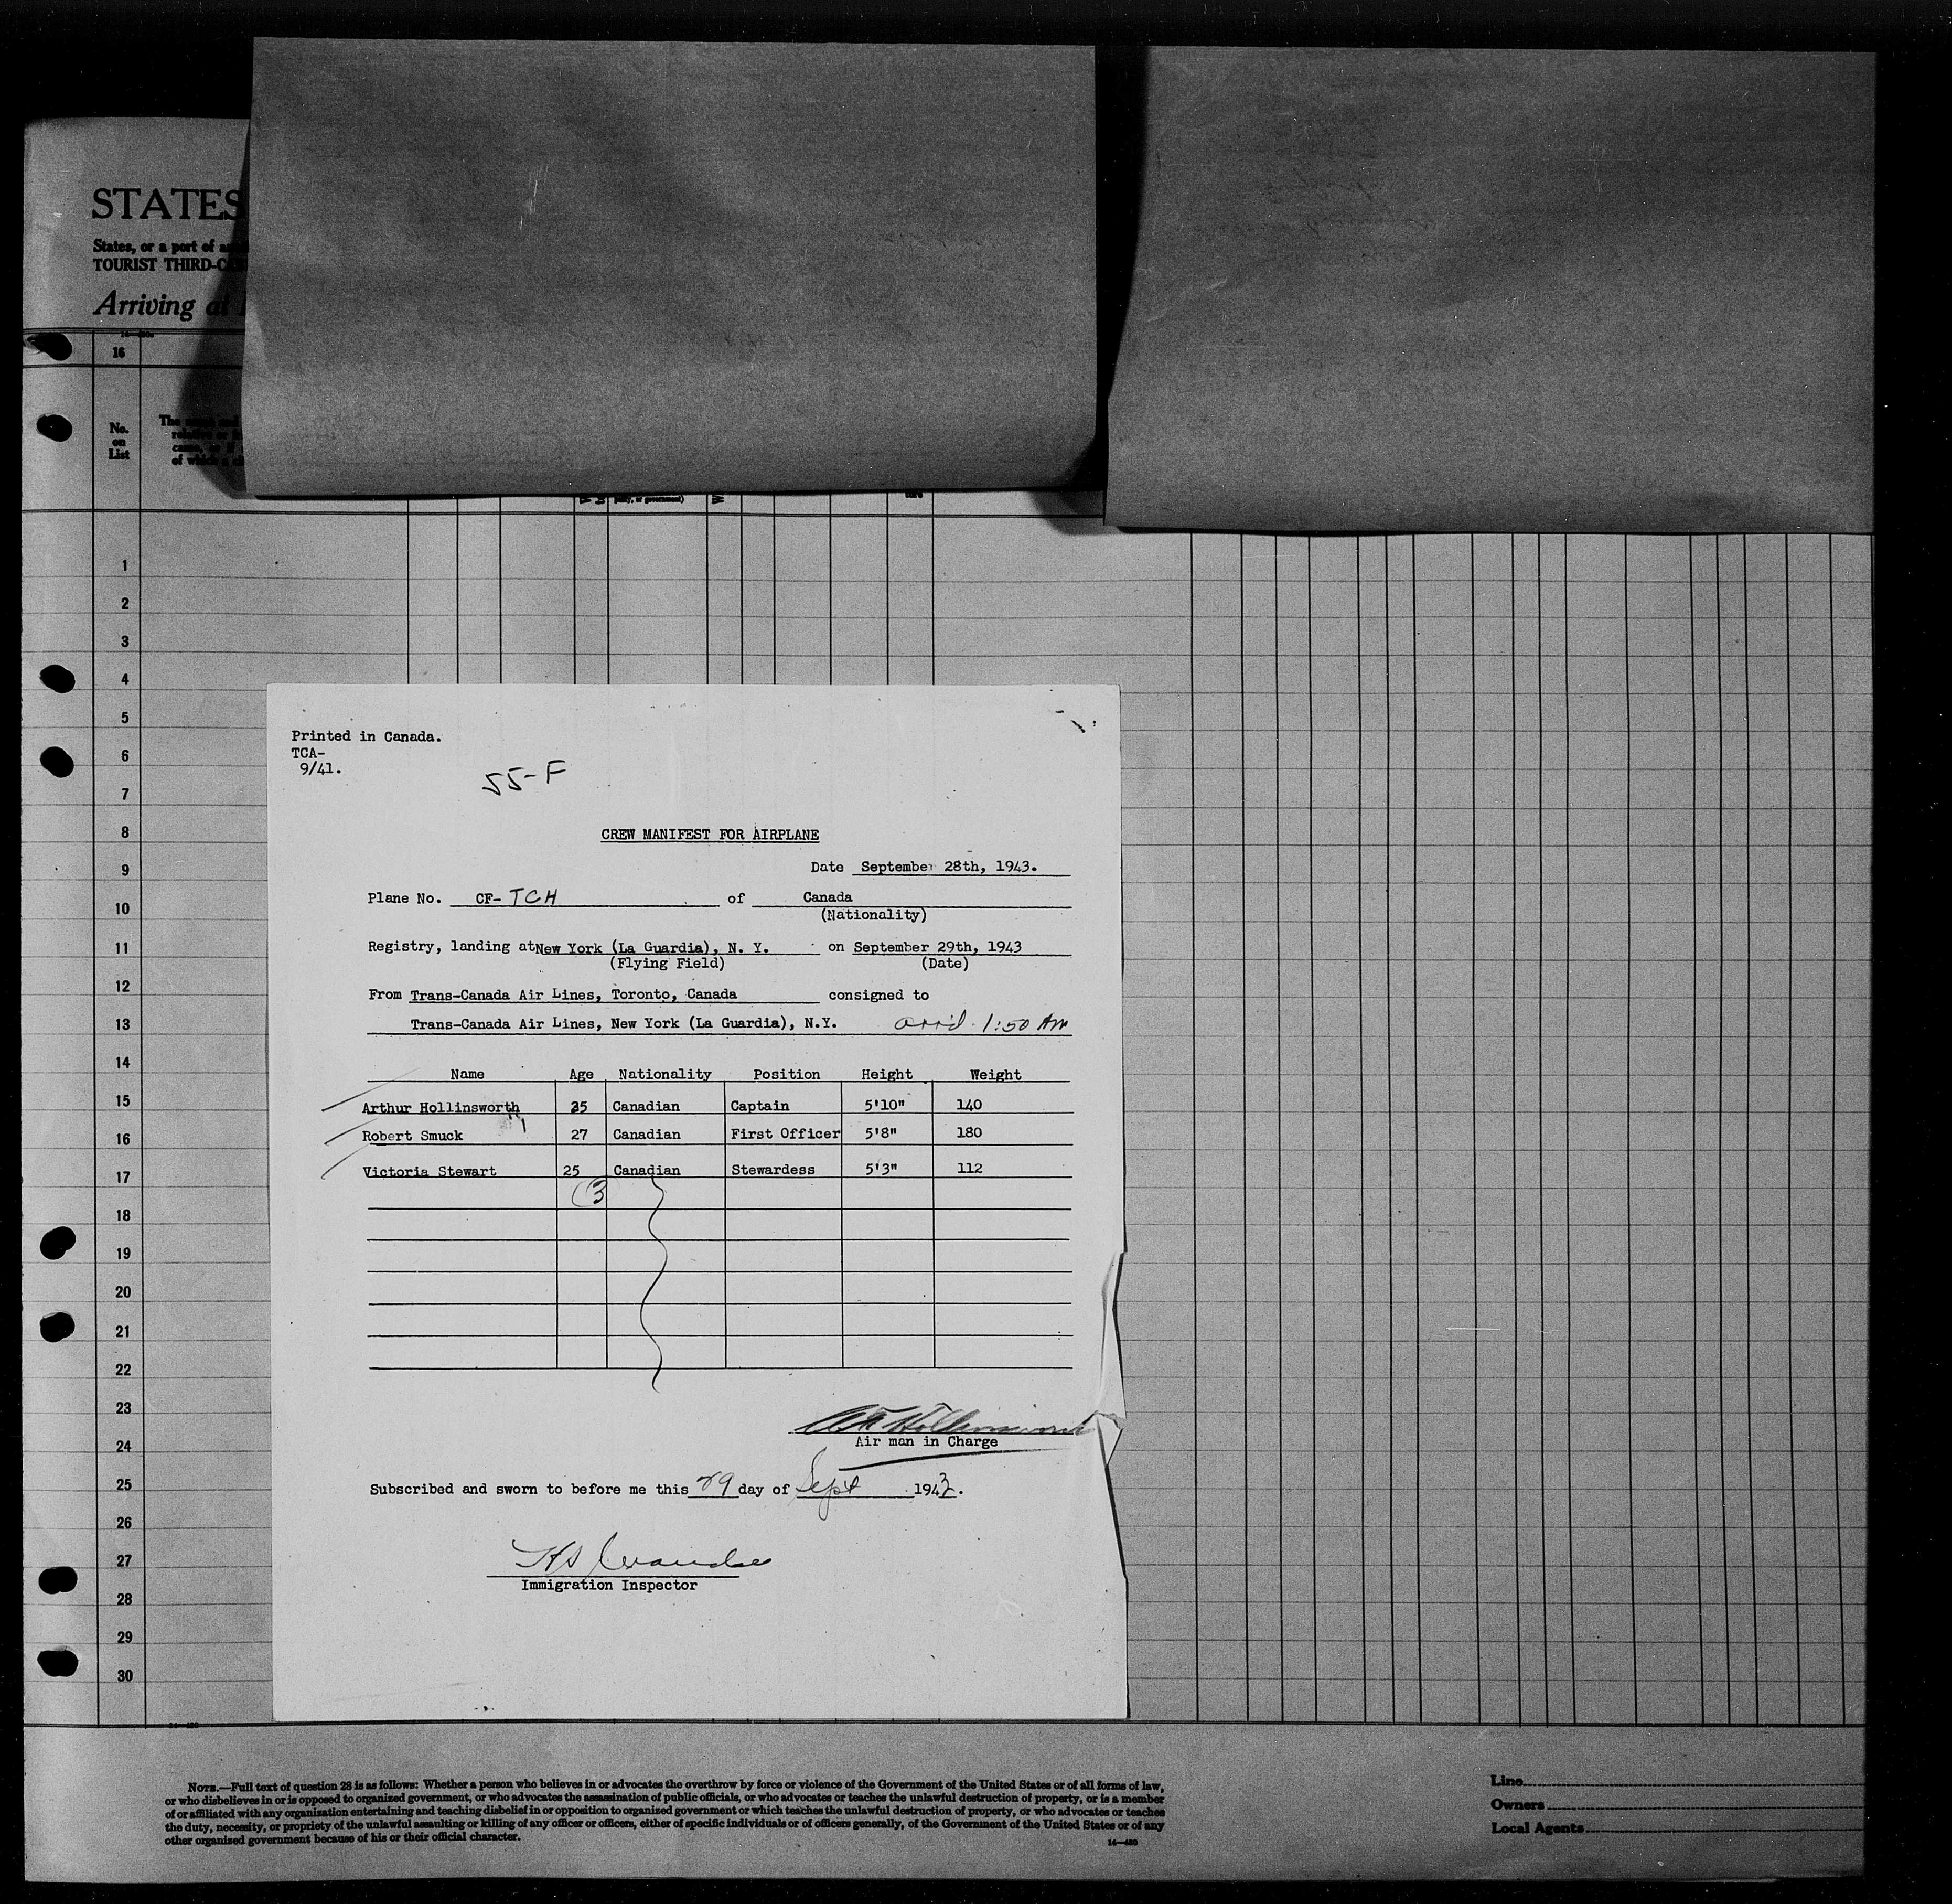 STATES
States, or a port of
TOURIST THIRD-
Arriving at
16
No.
on
List
The
of which a
party, or government)
1
2
3
4
5
6
7
8
9
10
11
12
13
14
15
16
17
18
19
20
21
22
23
24
25
26
27
28
29
30
Printed in Canada.
TCA-
9/41.
55-F
CREW MANIFEST FOR AIRPLANE
Date September 28th, 1943.
Plane No. CF- TCH of Canada
(Nationality)
Registry, landing at New York (La Guardia), N. Y. on September 29th, 1943
(Flying Field) (Date)
From Trans-Canada Air Lines, Toronto, Canada consigned to
Trans-Canada Air Lines, New York (La Guardia), N.Y. arr'd. 1:50 AM
Name Age Nationality Position Height Weight
Arthur Hollinsworth 25 Canadian Captain 5'10" 140
Robert Smuck 27 Canadian First Officer 5'8" 180
Victoria Stewart 25 Canadian Stewardess 5'3" 112
3
Hollinsworth
Air man in Charge
Subscribed and sworn to before me this 29 day of Sept 1943.
Immigration Inspector
NOTE.—Full text of question 28 is as follows: Whether a person who believes in or advocates the overthrow by force or violence of the Government of the United States or of all forms of law,
or who disbelieves in or is opposed to organized government, or who advocates the assassination of public officials, or who advocates or teaches the unlawful destruction of property, or is a member
of or affiliated with any organization entertaining and teaching disbelief in or opposition to organized government or which teaches the unlawful destruction of property, or who advocates or teaches
the duty, necessity, or propriety of the unlawful assaulting or killing of any officer or officers, either of specific individuals or of officers generally, of the Government of the United States or of any
other organized government because of his or their official character.
14—480
Line
Owners
Local Agents